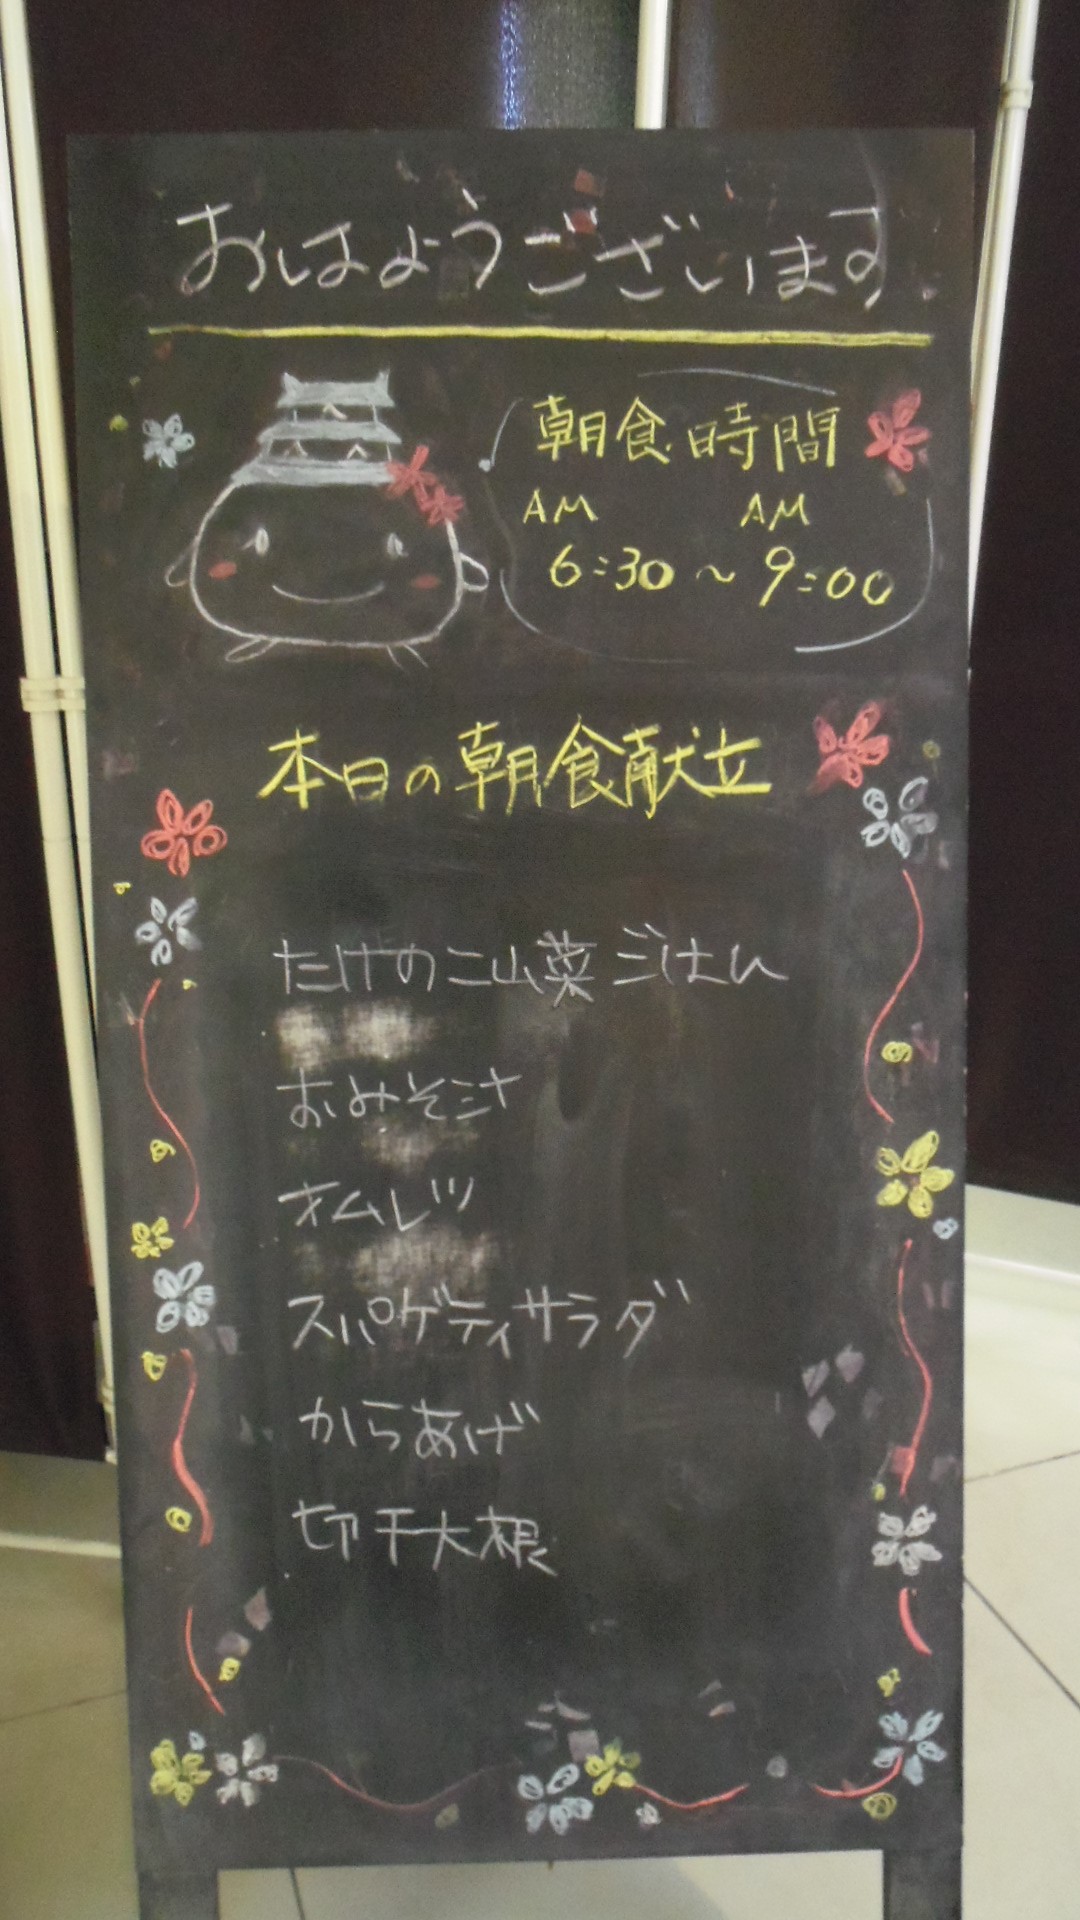 おはようございます
朝食時間
AM AM
6:30 ~ 9:00
本日の朝食献立
たけのこ山菜ごはん
おみそ汁
オムレツ
スパゲティサラダ
からあげ
切干大根